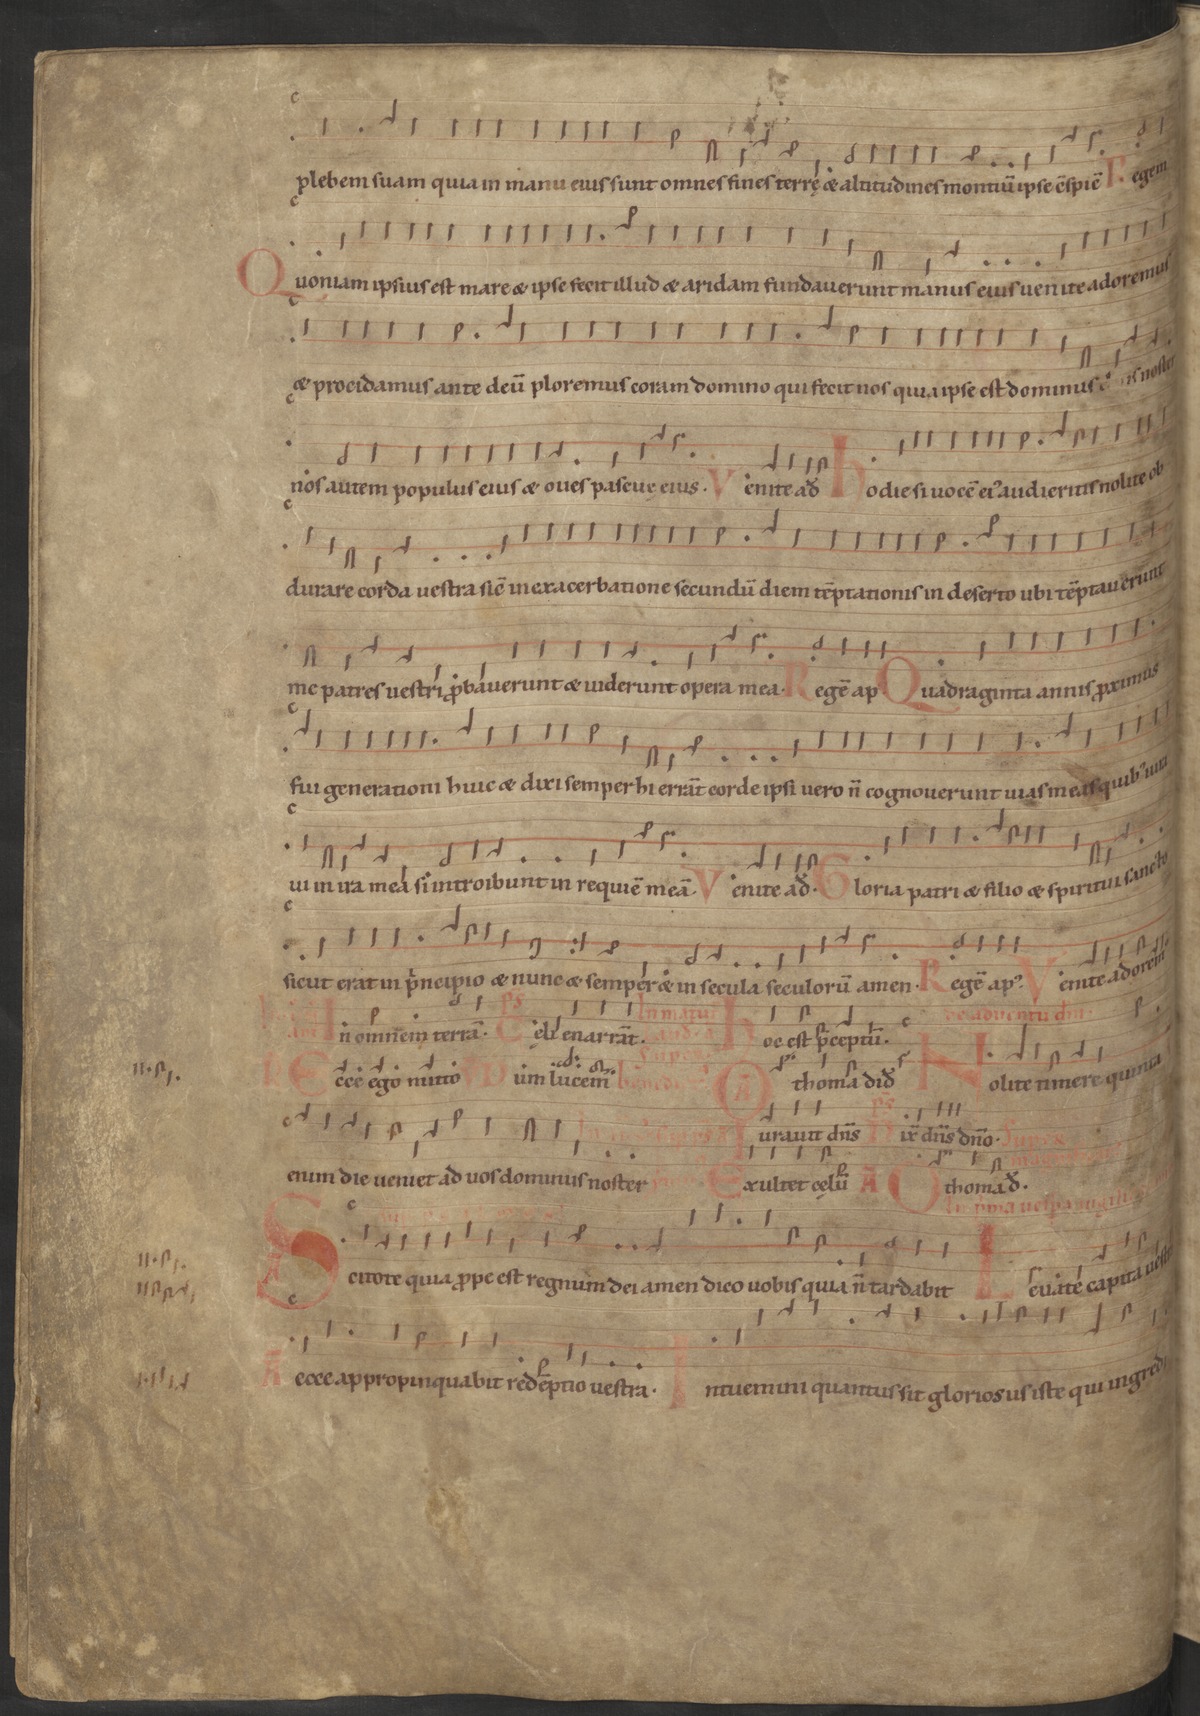 plebem suam quia in manu eius sunt omnes fines terrę & altitudines montiū ipse c̄spic̄ Regem
Quoniam ipsius est mare & ipse fecit illud & aridam fundaverunt manus eius venite adoremus
& procidamus ante deū ploremus coram domino qui fecit nos quia ipse est dominus noster
nos autem populus eius & oves pascue eius. Venite ad Hodie si vocē ei' audieritis nolite ob
durare corda vestra sic̄ in exacerbatione secundū diem tēptationis in deserto ubi tēptaverunt
me patres vestri pbaverunt & viderunt opera mea. Regē ap Quadraginta annis proximus
fui generationi huic & dixi semper hi errāt corde ipsi vero n̄ cognoverunt vias meas quib' iura
vi in ira mea si introibunt in requiē meā. Venite ad. Gloria patri & filio & spiritui sancto
sicut erat in principio & nunc & semper & in secula seculorū amen. Regē ap' Venite adorem
In omnem terrā. Celi enarrāt. Hoc est pceptū.
Ecce ego mitto Dum lucem O thoma did Nolite timere quinta
enim die veniet ad vos dominus noster Iuravit dn̄s Dix̄ dn̄s dn̄o.
Exultet cęlū A O thoma d.
Scitote quia ppe est regnum dei amen dico vobis quia n̄ tardabit Levate capita vestra
A ecce appropinquabit redēptio vestra. Intuemini quantus sit gloriosus iste qui ingredi